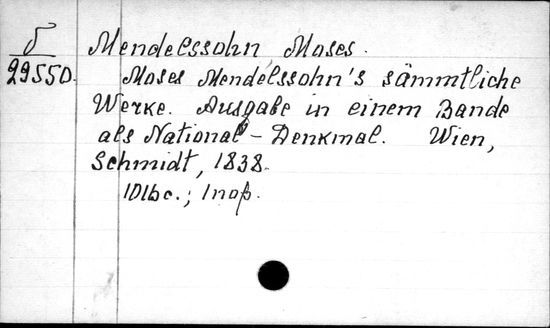 δ
29550.
Mendelssohn Moses.
Moses Mendelssohn's sämmtliche
Werke. Ausgabe in einem Bande
als National-Denkmal. Wien,
Schmidt, 1838.